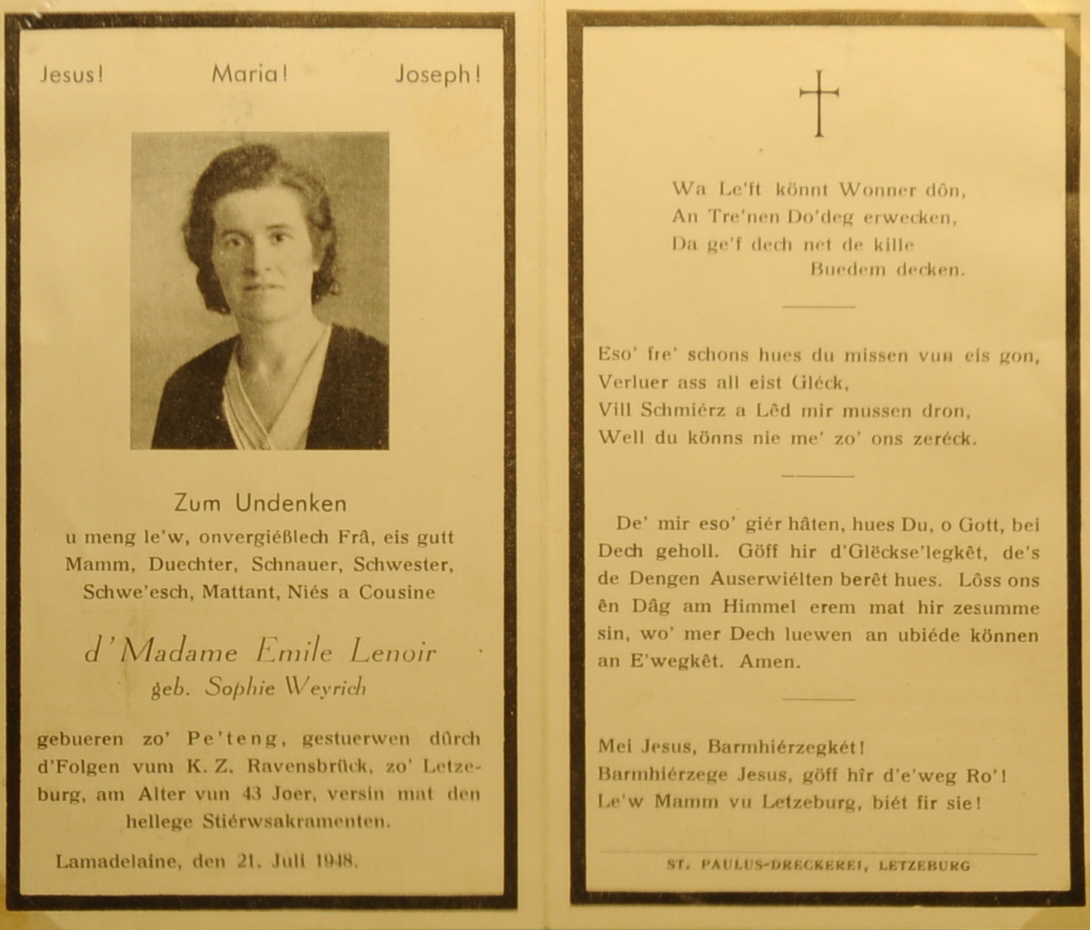 Jesus! Maria! Joseph!
Zum Undenken
u meng le'w, onvergiéßlech Frâ, eis gutt
Mamm, Duechter, Schnauer, Schwester,
Schwe'esch, Mattant, Niés a Cousine
d'Madame Emile Lenoir
geb. Sophie Weyrich
gebueren zo' Pe'teng, gestuerwen dûrch
d'Folgen vum K. Z. Ravensbrück, zo' Letze-
burg, am Alter vun 43 Joer, versin mat den
hellege Stiérwsakramenten.
Lamadelaine, den 21. Juli 1948.
Wa Le'ft könnt Wonner dôn,
An Tre'nen Do'deg erwecken,
Da ge'f dech net de kille
Buedem decken.
Eso' fre' schons hues du missen vun eis gon,
Verluer ass all eist Gléck,
Vill Schmiérz a Lêd mir mussen dron,
Well du könns nie me' zo' ons zeréck.
De' mir eso' giér hâten, hues Du, o Gott, bei
Dech geholl. Göff hir d'Glëckse'legkêt, de's
de Dengen Auserwiélten berêt hues. Lôss ons
ên Dâg am Himmel erem mat hir zesumme
sin, wo' mer Dech luewen an ubiéde können
an E'wegkêt. Amen.
Mei Jesus, Barmhiérzegkét!
Barmhiérzege Jesus, göff hîr d'e'weg Ro'!
Le'w Mamm vu Letzeburg, biét fir sie!
ST. PAULUS-DRECKEREI, LETZEBURG